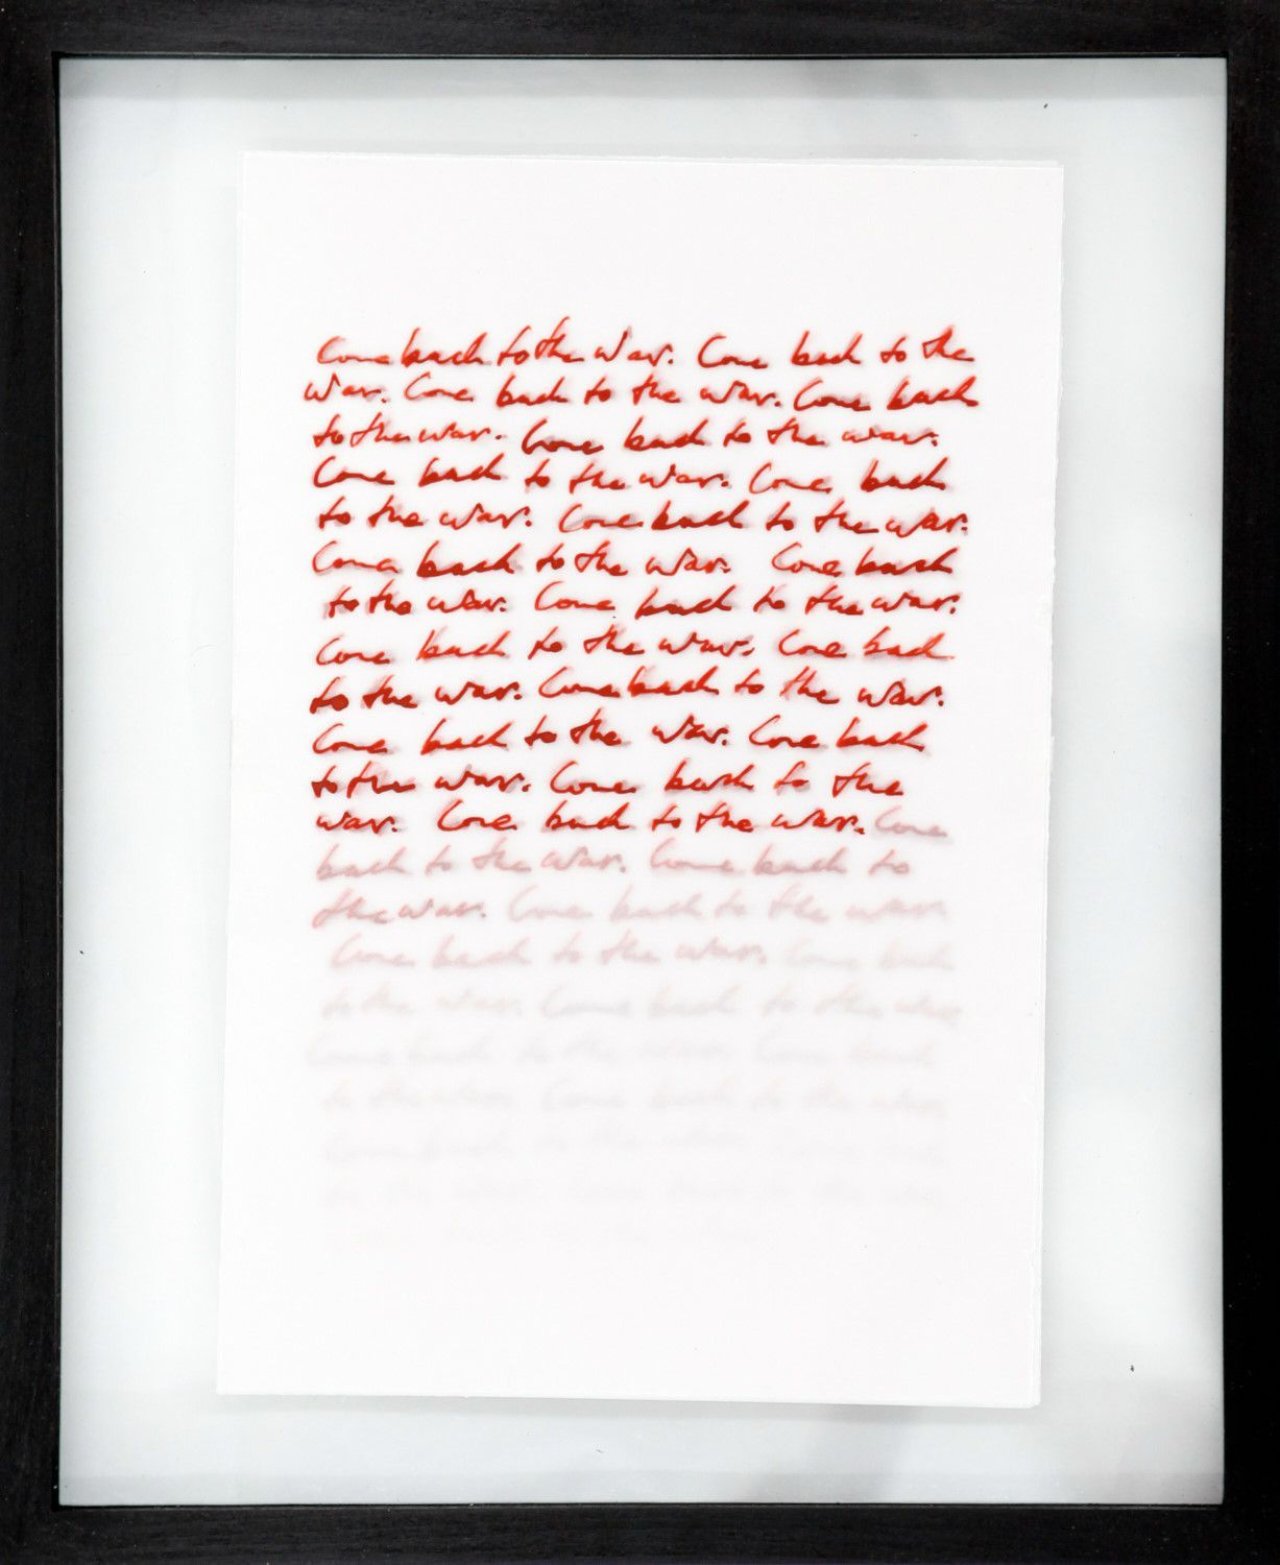 Come back to the war. Come back to the
war. Come back to the war. Come back
to the war. Come back to the war.
Come back to the war. Come back
to the war. Come back to the war.
Come back to the war. Come back
to the war. Come back to the war.
Come back to the war. Come back
to the war. Come back to the war.
Come back to the war. Come back
to the war. Come back to the
war. Come back to the war. Come
back to the war. Come back to
the war. Come back to the war
Come back to the war. Come back
to the war. Come back to the war
Come back to the war Come back
to the war Come back to the war
Come back to the war